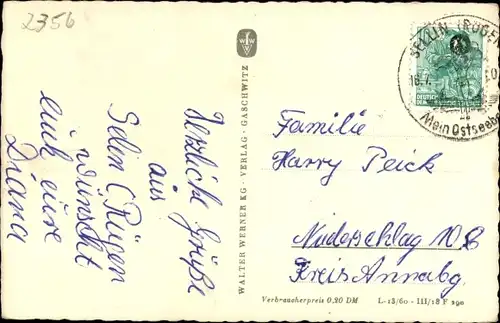 2356
Herzliche Grüße
aus
Selin (Rügen
wünscht
euch eure
Diana
WALTER WERNER KG · VERLAG · GASCHWITZ
SELLIN (RÜGEN)
18.7.
Mein Ostseeba
DEUTSCHE
Familie
Harry Peick
Niederschlag 10
Kreis Annabg.
Verbraucherpreis 0,20 DM
L-18/60 - III/18 F 290